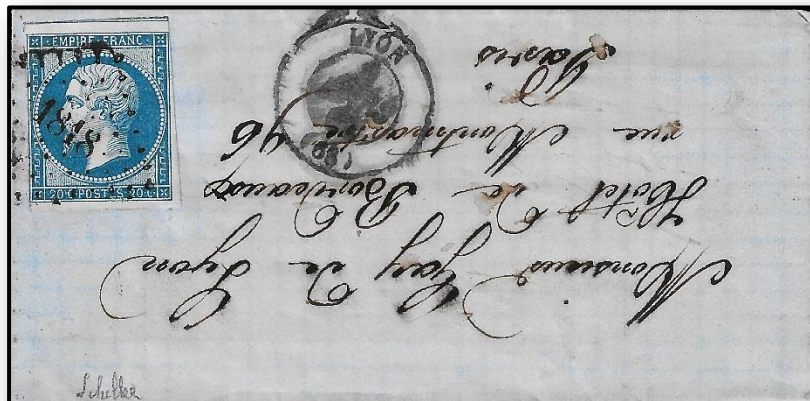 EMPIRE FRANC
1818
20 C POSTES 20 C
LYON
(68)
Monsieur Gay de Lyon
Hôtel de Bordeaux
rue Montmartre 96
Paris
Scheller